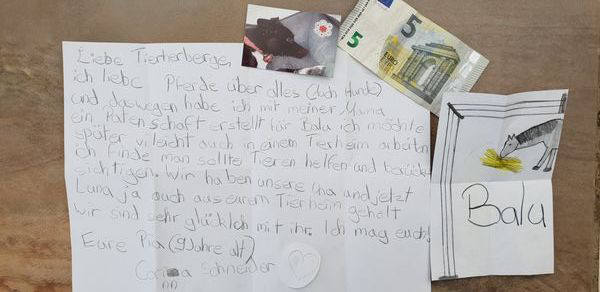 Liebe Tierherberge,
ich liebe Pferde über alles (Auch Hunde)
und deswegen habe ich mit meiner Mama
ein Patenschaft erstellt für Balu ich möchte
später vileicht auch in einem Tierheim arbeiten
ich finde man sollte Tieren helfen und berück-
sichtigen. Wir haben unsere Una und jetzt
Luna ja auch aus eurem Tierheim geholt
wir sind sehr glücklich mit ihr. Ich mag euch!
Eure Pia (9 Jahre alt)
Schneider
5
5
EURO
Balu